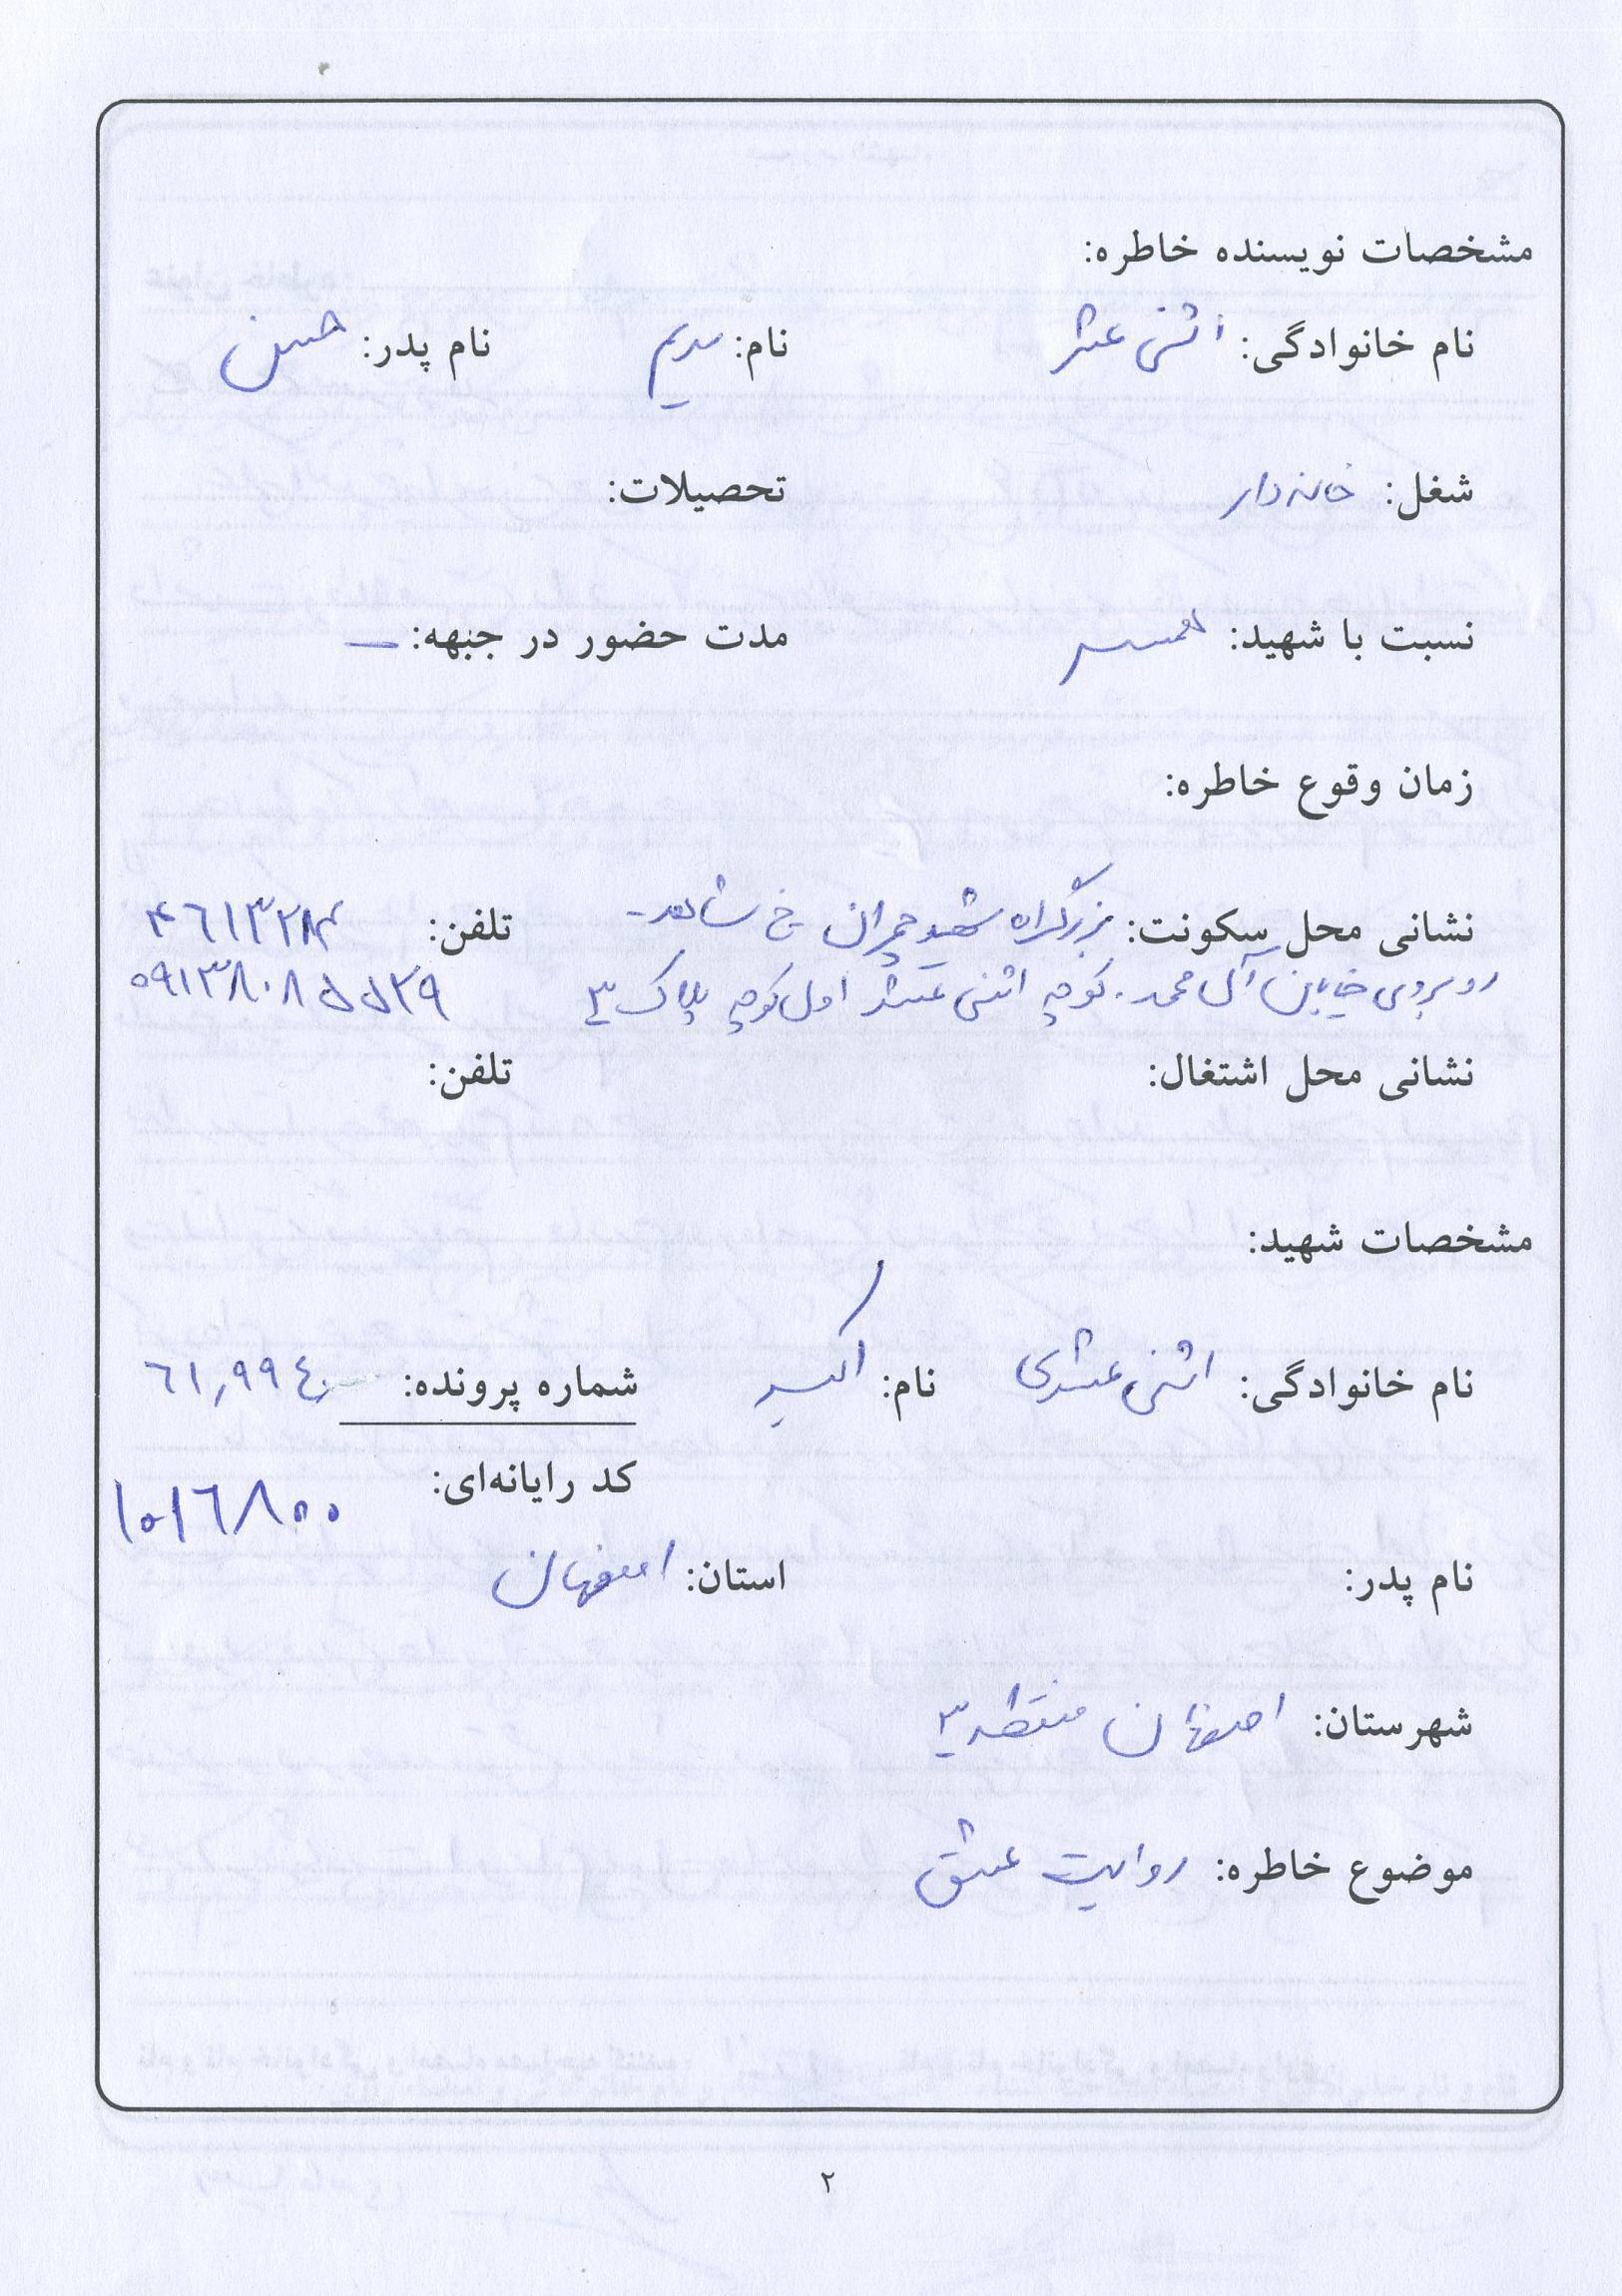 مشخصات نویسنده خاطره:
نام خانوادگی: اثنی عشر نام: مریم نام پدر: حسن
شغل: خانه دار تحصیلات:
نسبت با شهید: همسر مدت حضور در جبهه: ـ
زمان وقوع خاطره:
نشانی محل سکونت: بزرگراه شهید چمران خ شاهد - تلفن: ۴۶۱۳۲۸۴
روبروی خیابان آل محمد. کوچه اثنی عشر اول کوچه پلاک ۳ ۰۹۱۳۸۰۸۵۵۲۹
نشانی محل اشتغال: تلفن:
مشخصات شهید:
نام خانوادگی: اثنی عشری نام: اکبر شماره پرونده:
کد رایانه‌ای: ۱۰۱۶۸۰۰
نام پدر: استان: اصفهان
شهرستان: اصفهان منطقه ۳
موضوع خاطره: روایت عشق
۲